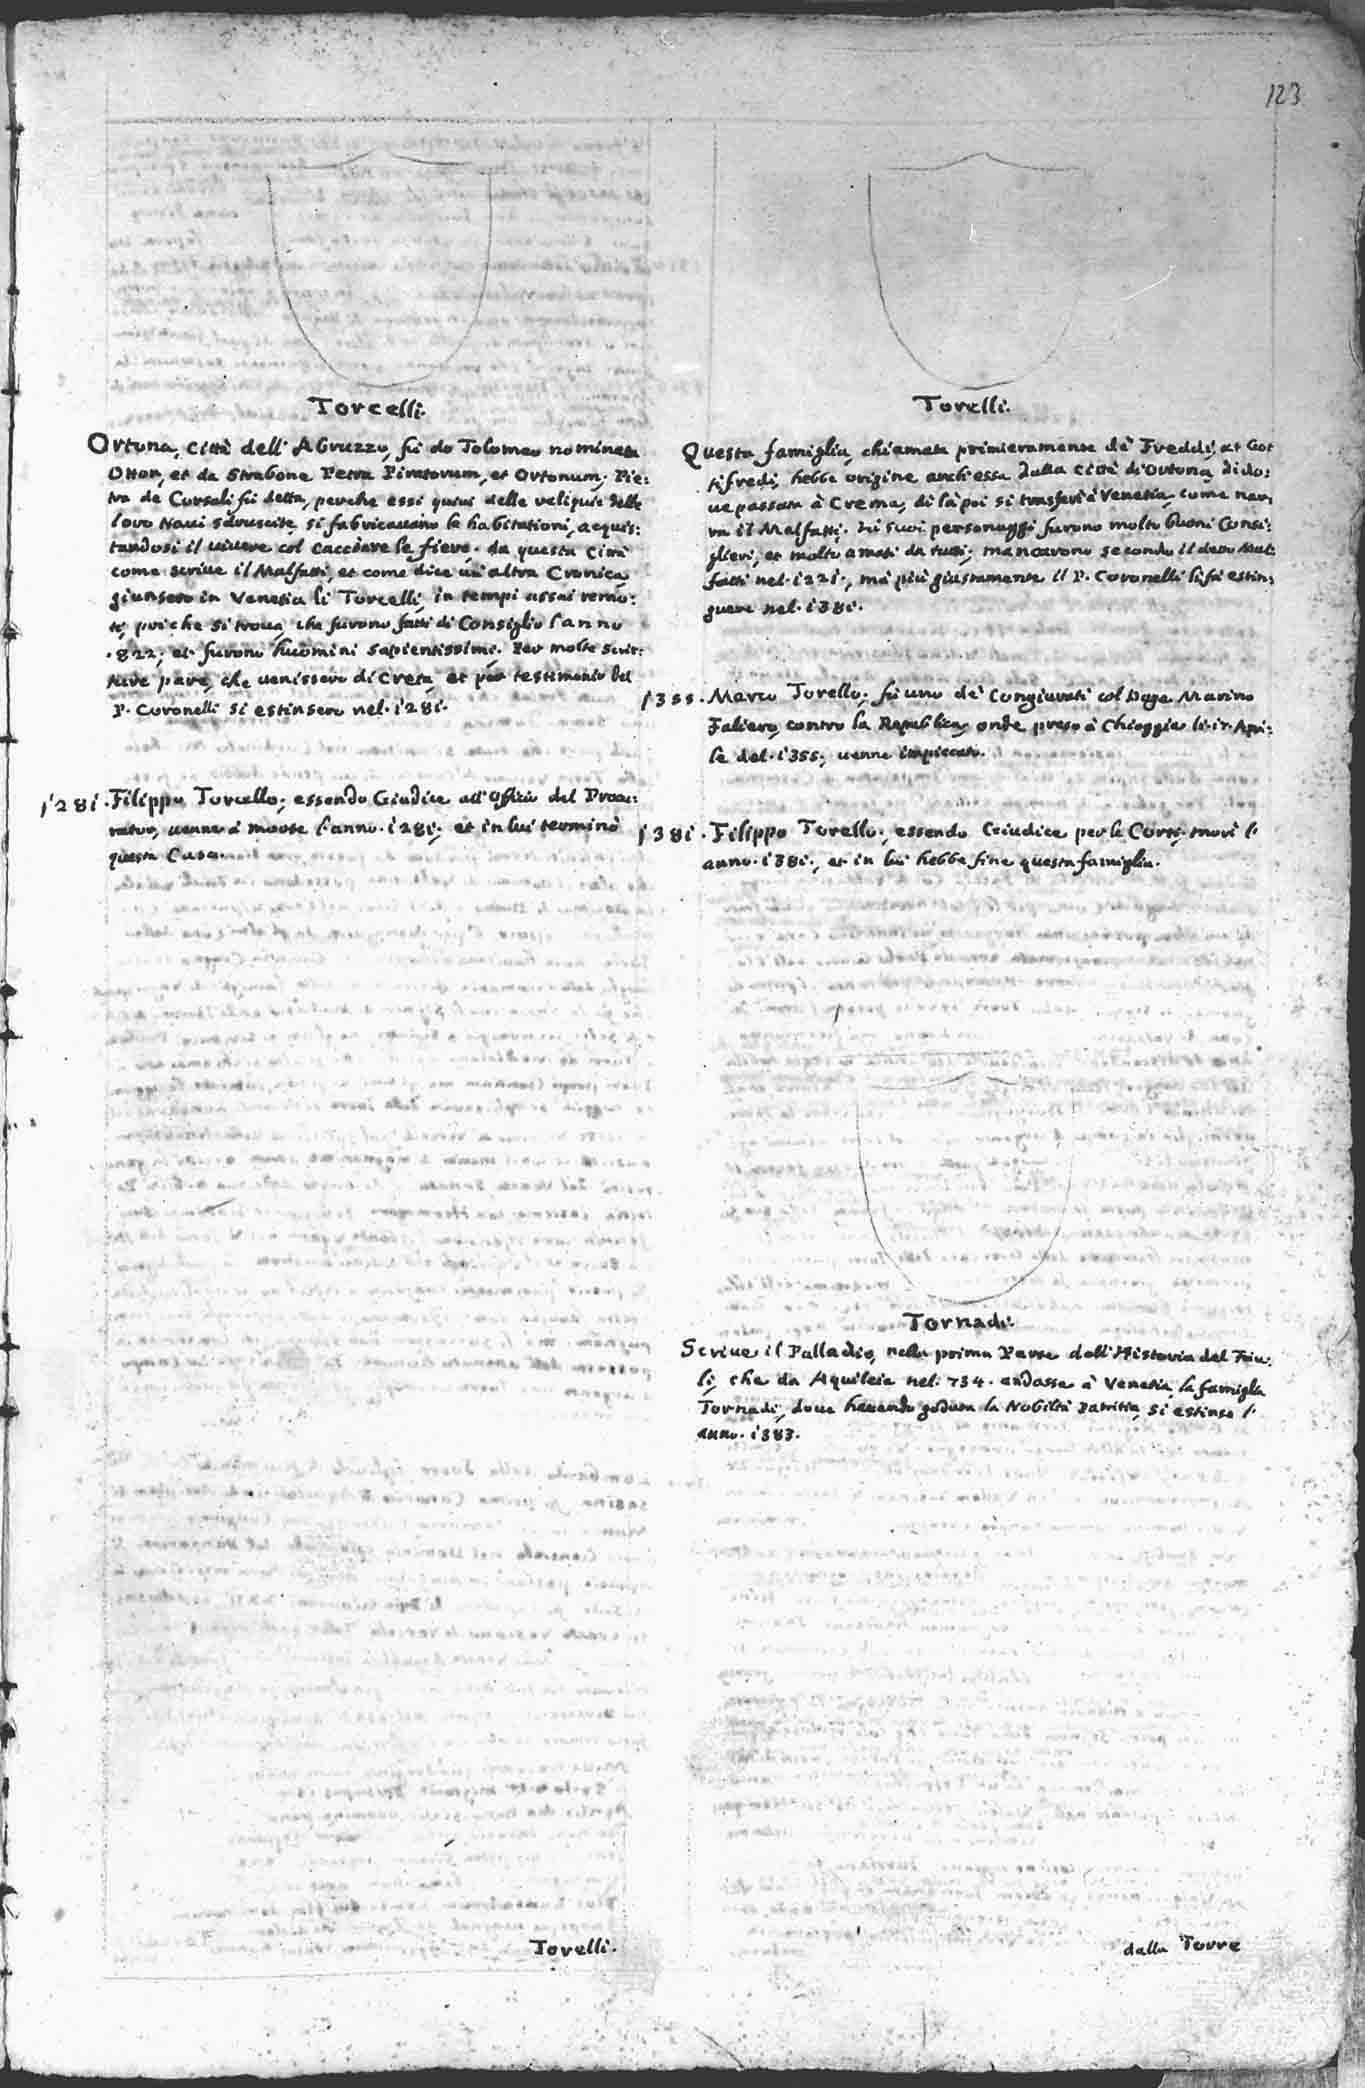 123
Torcelli.
Ortona, Città dell' Abruzzo, fù da Tolomeo nominata
Otton, et da Strabone Petra Piratorum, et Ortonum; Pie:
tra de Corsali fù detta, perche essi quiui delle reliquie delle
loro Naui sdruscite, si fabricauano le habitationi, acquis:
tandosi il uiuere col cacciare le fiere. da questa Città
come scriue il Malfatti, et come dice un' altra Cronica,
giunsero in Venetia li Torcelli, in tempi assai remo:
ti, poiche si troua, che furono fatti di Consiglio l'anno
.822; et furono huomini sapientissimi. Per molte scrit:
ture pare, che uenissero di Creta, et per testimonio del
P. Coronelli si estinsero nel. 1281.
1281. Filippo Torcello; essendo Giudice all' Officio del Procu:
rator, uenne à morte l'anno. 1281; et in lui terminò
questa Casa.
Torelli.
Torelli.
Questa famiglia, chiamata primieramente de' Freddi, et Got
tifredi, hebbe origine anch'essa dalla Città di Ortona, di do:
ue passata à Crema, di là poi si trasferì à Venetia, come nar:
ra il Malfatti. Li suoi personaggi furono molto buoni Consi:
glieri, et molto amati da tutti; mancarono secondo il detto Mal:
fatti nel. 1221., mà più giustamente il P. Coronelli li fà estin:
guere nel. 1381.
1355. Marco Torello; fù uno de' Congiurati col Doge Marino
Faliero, contro la Republica, onde preso à Chioggia li. 17. Apri:
le del. 1355; uenne impiccato.
1381. Filippo Torello; essendo Giudice per le Corti, morì l'
anno. 1381., et in lui hebbe fine questa famiglia.
Tornadi.
Scriue il Palladio, nella prima Parte dell' Historia del Friu:
li, che da Aquileia nel. 734. andasse à Venetia, la famiglia
Tornadi, doue hauendo goduta la Nobiltà Patritia, si estinse l'
anno. 1383.
dalla Torre